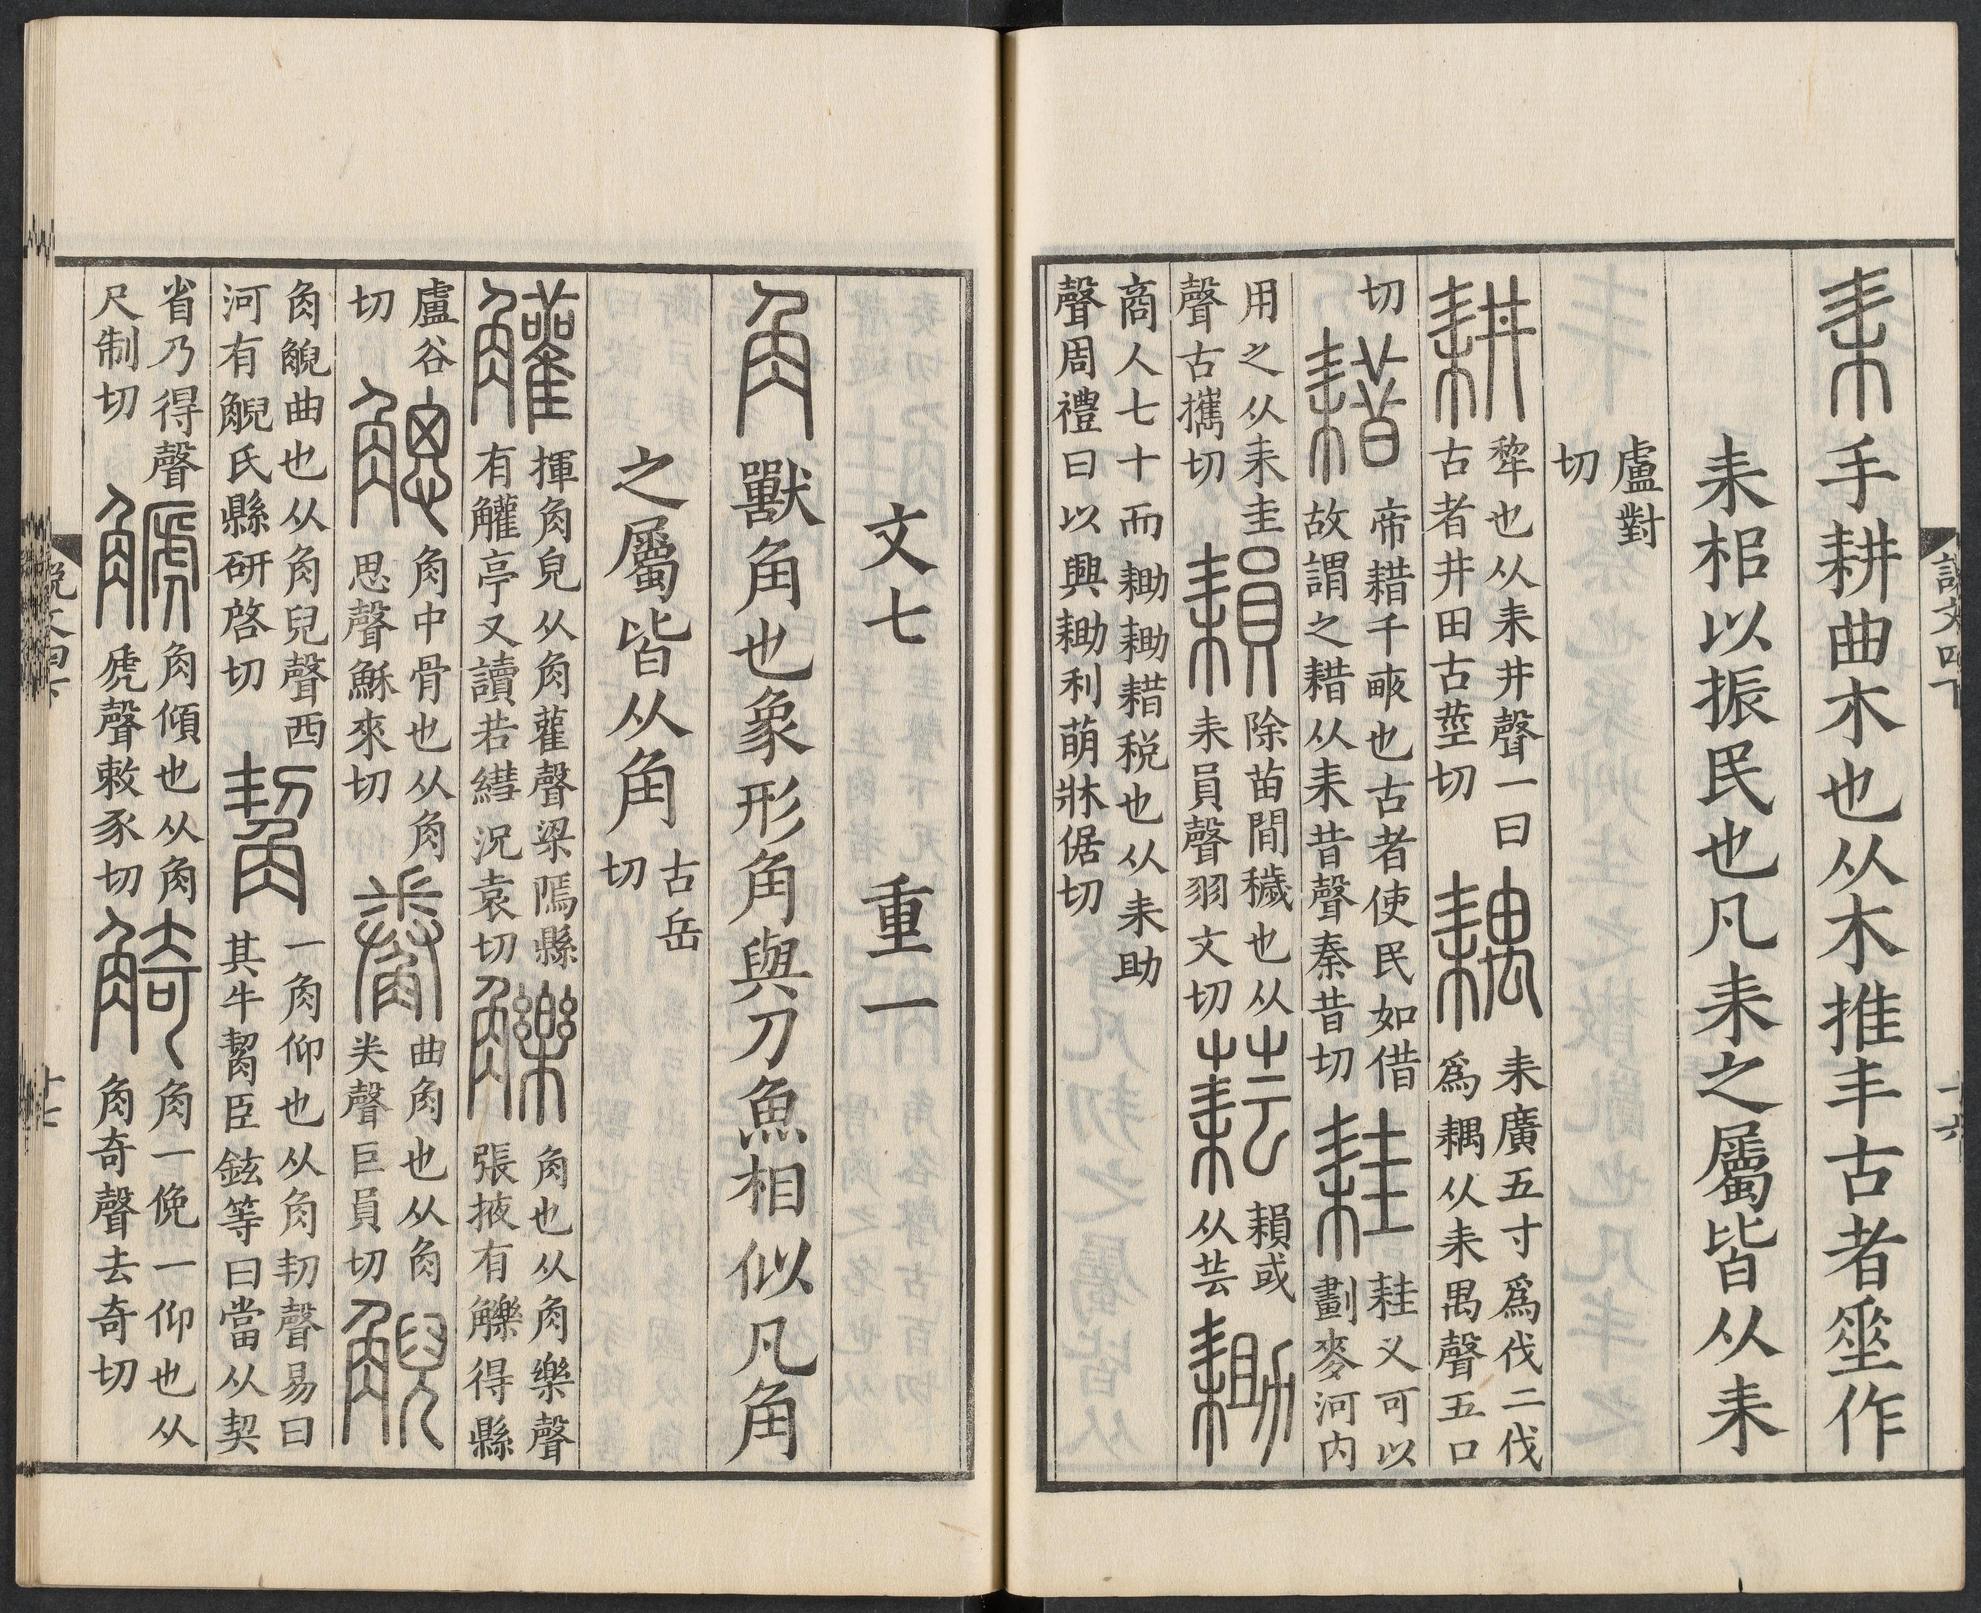 說文四下 十六
耒手耕曲木也从木推丰古者垂作
耒梠以振民也凡耒之屬皆从耒
盧對切
耕犂也从耒井聲一曰古者井田古莖切耦耒廣五寸爲伐二伐爲耦从耒禺聲五口
切耤帝耤千畝也古者使民如借故謂之耤从耒昔聲秦昔切𦓯𦓯义可以劃麥河内
用之从耒圭聲古攜切䎱除苗閒穢也从耒員聲羽文切䎱或从芸耡
商人七十而耡耡耤稅也从耒助聲周禮曰以興耡利萌牀倨切
文七 重一
角獸角也象形角與刀魚相似凡角
之屬皆从角古岳切
䚭揮角皃从角雚聲梁隖縣有䚭亭又讀若繕況袁切觻角也从角樂聲張掖有觻得縣
盧谷切䚡角中骨也从角思聲穌來切觠曲角也从角𢍏聲巨員切觬
角觬曲也从角兒聲西河有觬氏縣研啓切觢一角仰也从角㓞聲易曰其牛觢臣鉉等曰當从契
省乃得聲尺制切𧤗角傾也从角虒聲敕豕切觭角一俛一仰也从角奇聲去奇切
說文四下 十七